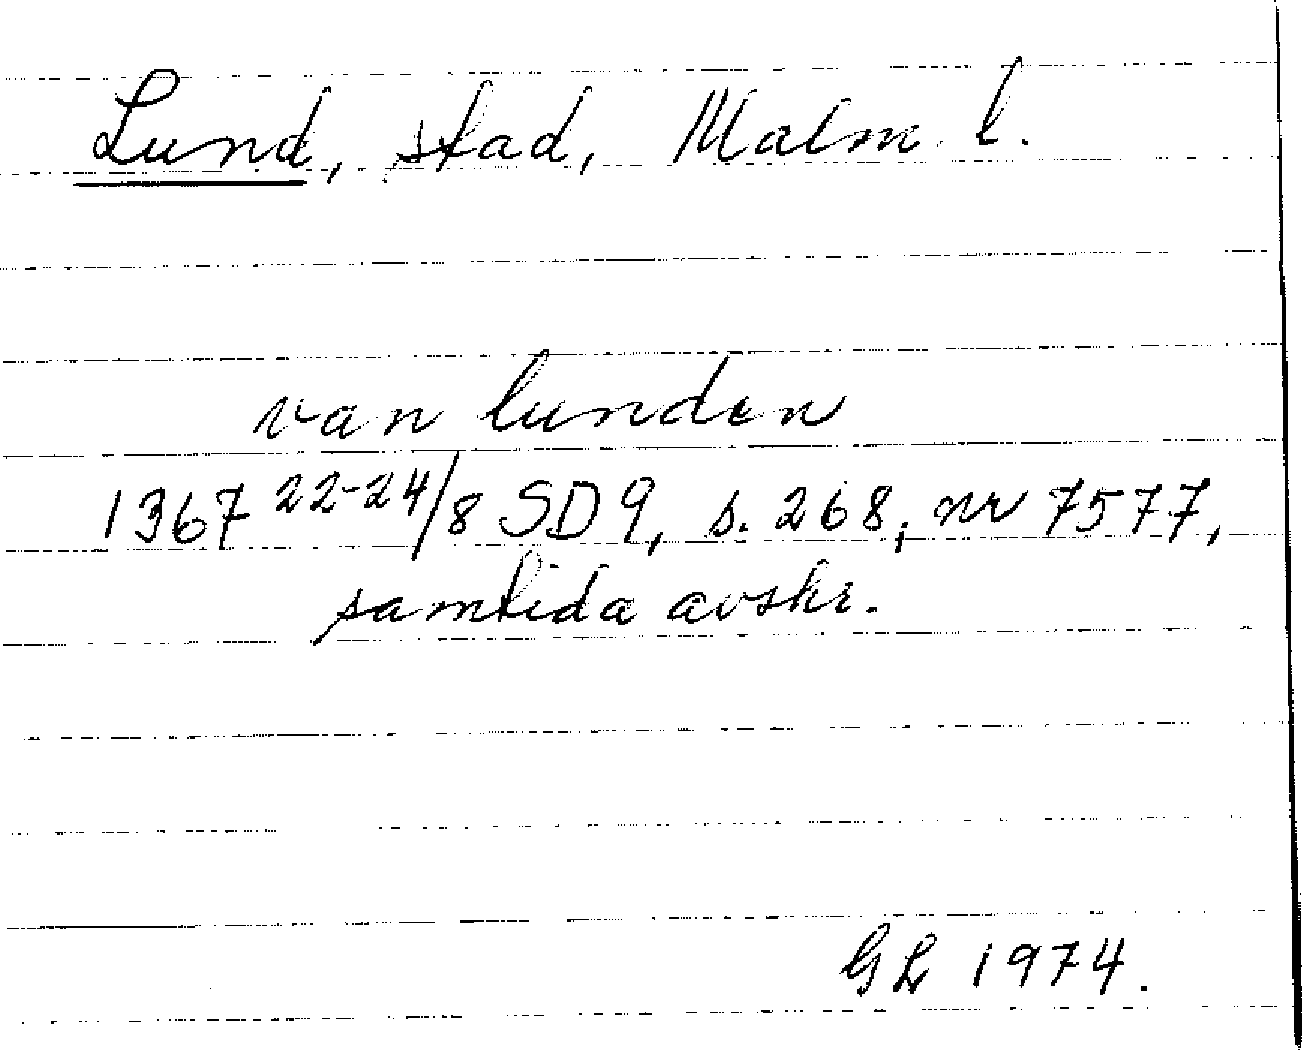 Lund, stad, Malm. l.
van lunden
1367 22-24/8 SD 9, s. 268, nr 7577,
samtida avskr.
GL 1974.